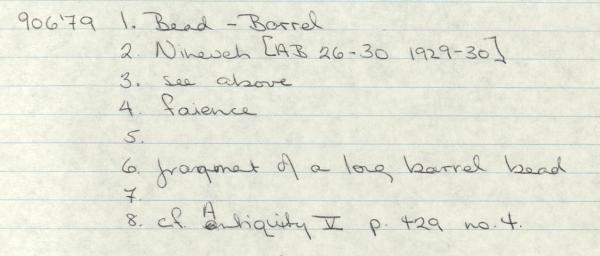 906'79 1. Bead - Barrel
2. Nineveh [AB 26-30 1929-30]
3. see above
4. faience
5.
6. fragment of a long barrel bead
7.
8. cf. Antiquity V p. 429 no. 4.